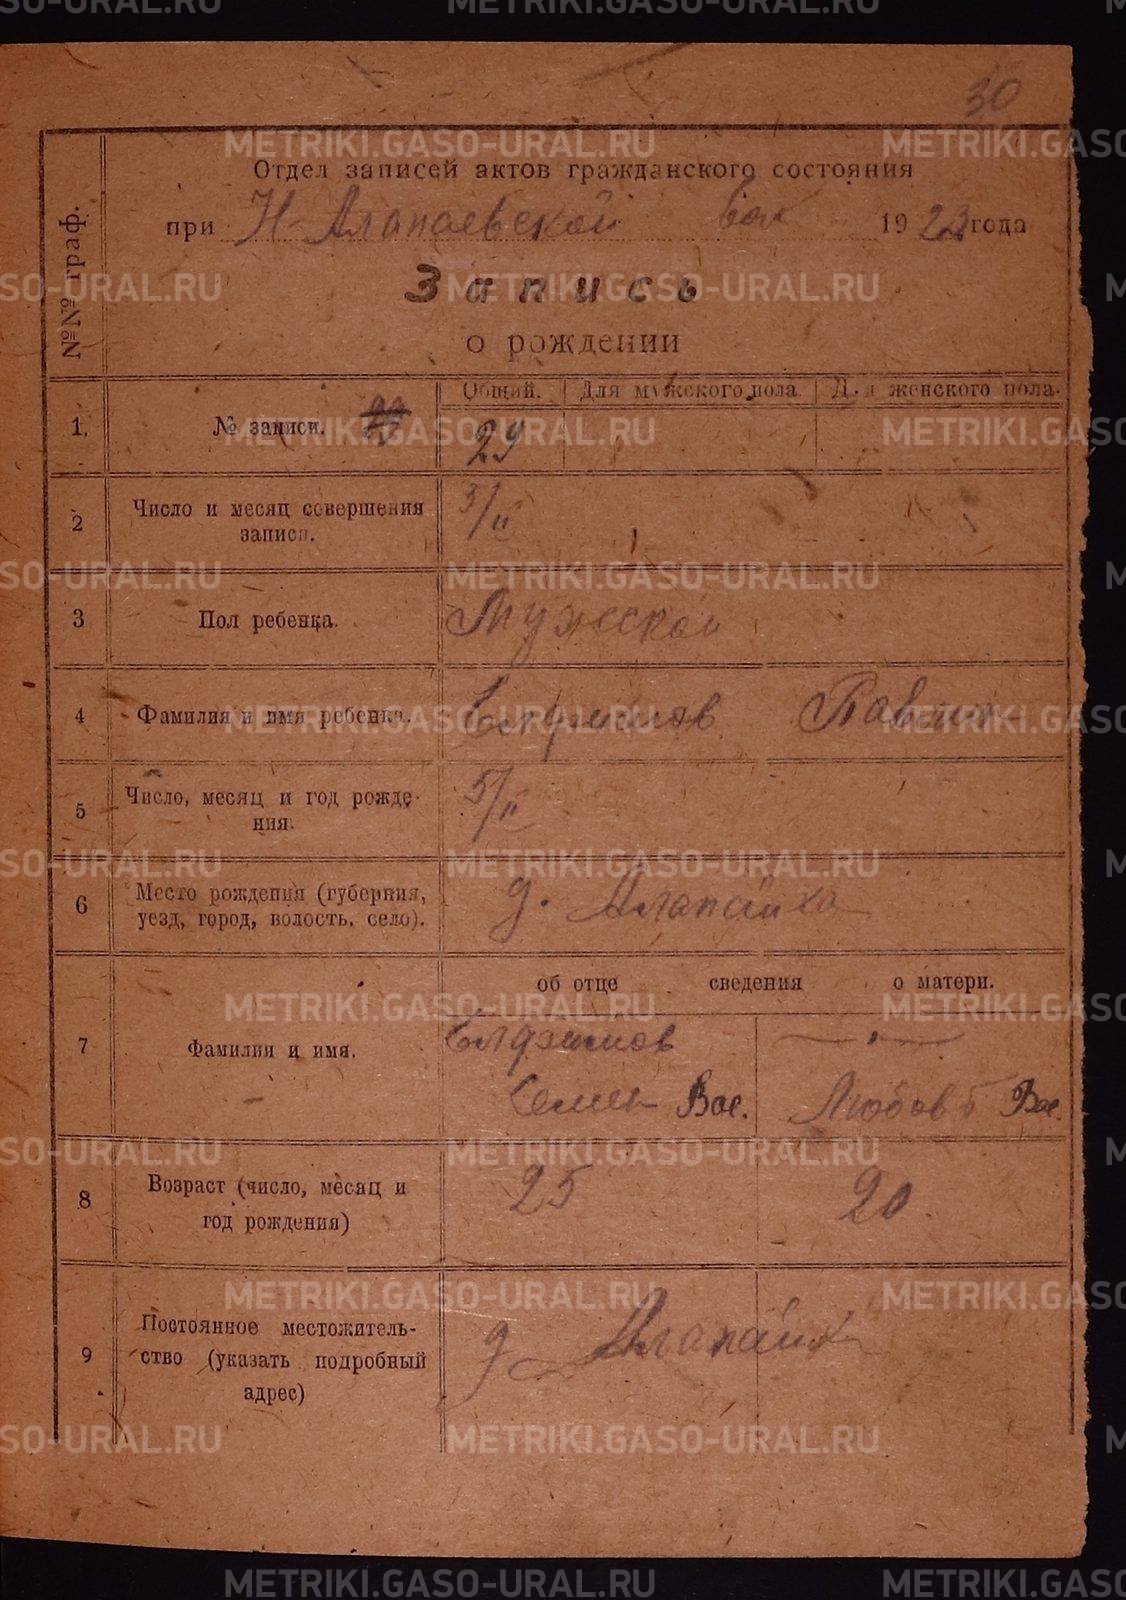 30
Отдел записей актов гражданского состояния
при Н-Алапаевской вол 1923 года
Запись
о рождении
№№ граф.
Общий. Для мужского пола. Для женского пола.
1. № записи. 29
2 Число и месяц совершения
записи.
/II
3 Пол ребенка. Мужской
4 Фамилия и имя ребенка. Елфимов Павлин
5 Число, месяц и год рожде-
ния.
5/II
6 Место рождения (губерния,
уезд, город, волость, село).
д. Алапаиха
об отце сведения о матери.
7 Фамилия и имя.
Елфимов — " —
Семен Вас. Любовь Вас.
8 Возраст (число, месяц и
год рождения)
25 20.
9 Постоянное местожитель-
ство (указать подробный
адрес)
д Алапаиха
METRIKI.GASO-URAL.RU